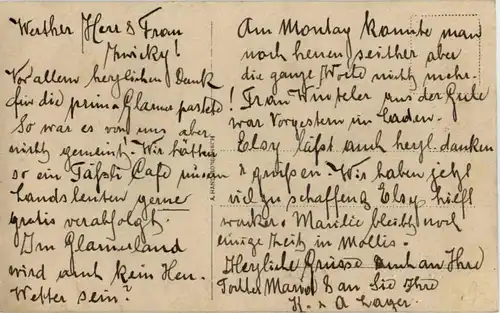 Werther Herr & Frau
Zwicky!
Vor allem herzlichen Dank
für die prima Glarnerpastete
So war es von uns aber
nicht gemeint. Wir hätten
so ein Täßli Café unsern
Landsleuten gerne
gratis verabfolgt.
Im Glarnerland
wird auch kein Heu-
Wetter sein?
Am Montag konnte man
noch heuen seither aber
die ganze Woche nicht mehr.
! Frau Winteler aus der
war Vorgestern im Laden.
Elsy läßt auch herzl. danken
& grüßen. Wir haben jetzt
viel zu schaffen Elsy hielf
wacker. Marilie bleibt noch
einige Zeit in Mollis.
Herzliche Grüsse auch an Ihre
Tochter Marie & an Sie Ihre
H. & A Zager.